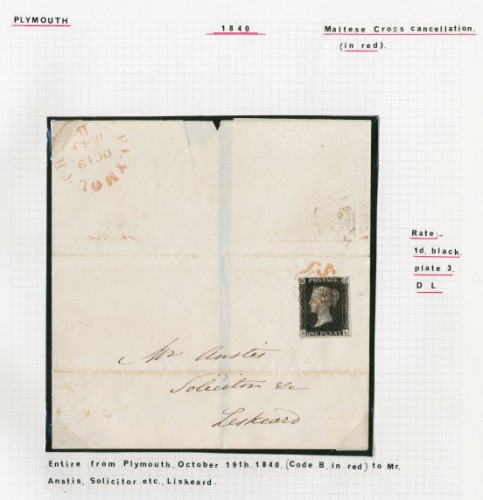 PLYMOUTH
1840
Maltese Cross cancellation.
(in red).
PLYMOUTH
B
OC 19
1840
Rate:-
1d. black.
plate 3.
D L
POSTAGE
D L
ONE PENNY
Mr Anstis
Solicitor &c
Leskeard
Entire from Plymouth, October 19th. 1840, (Code B, in red) to Mr.
Anstis, Solicitor etc., Liskeard.